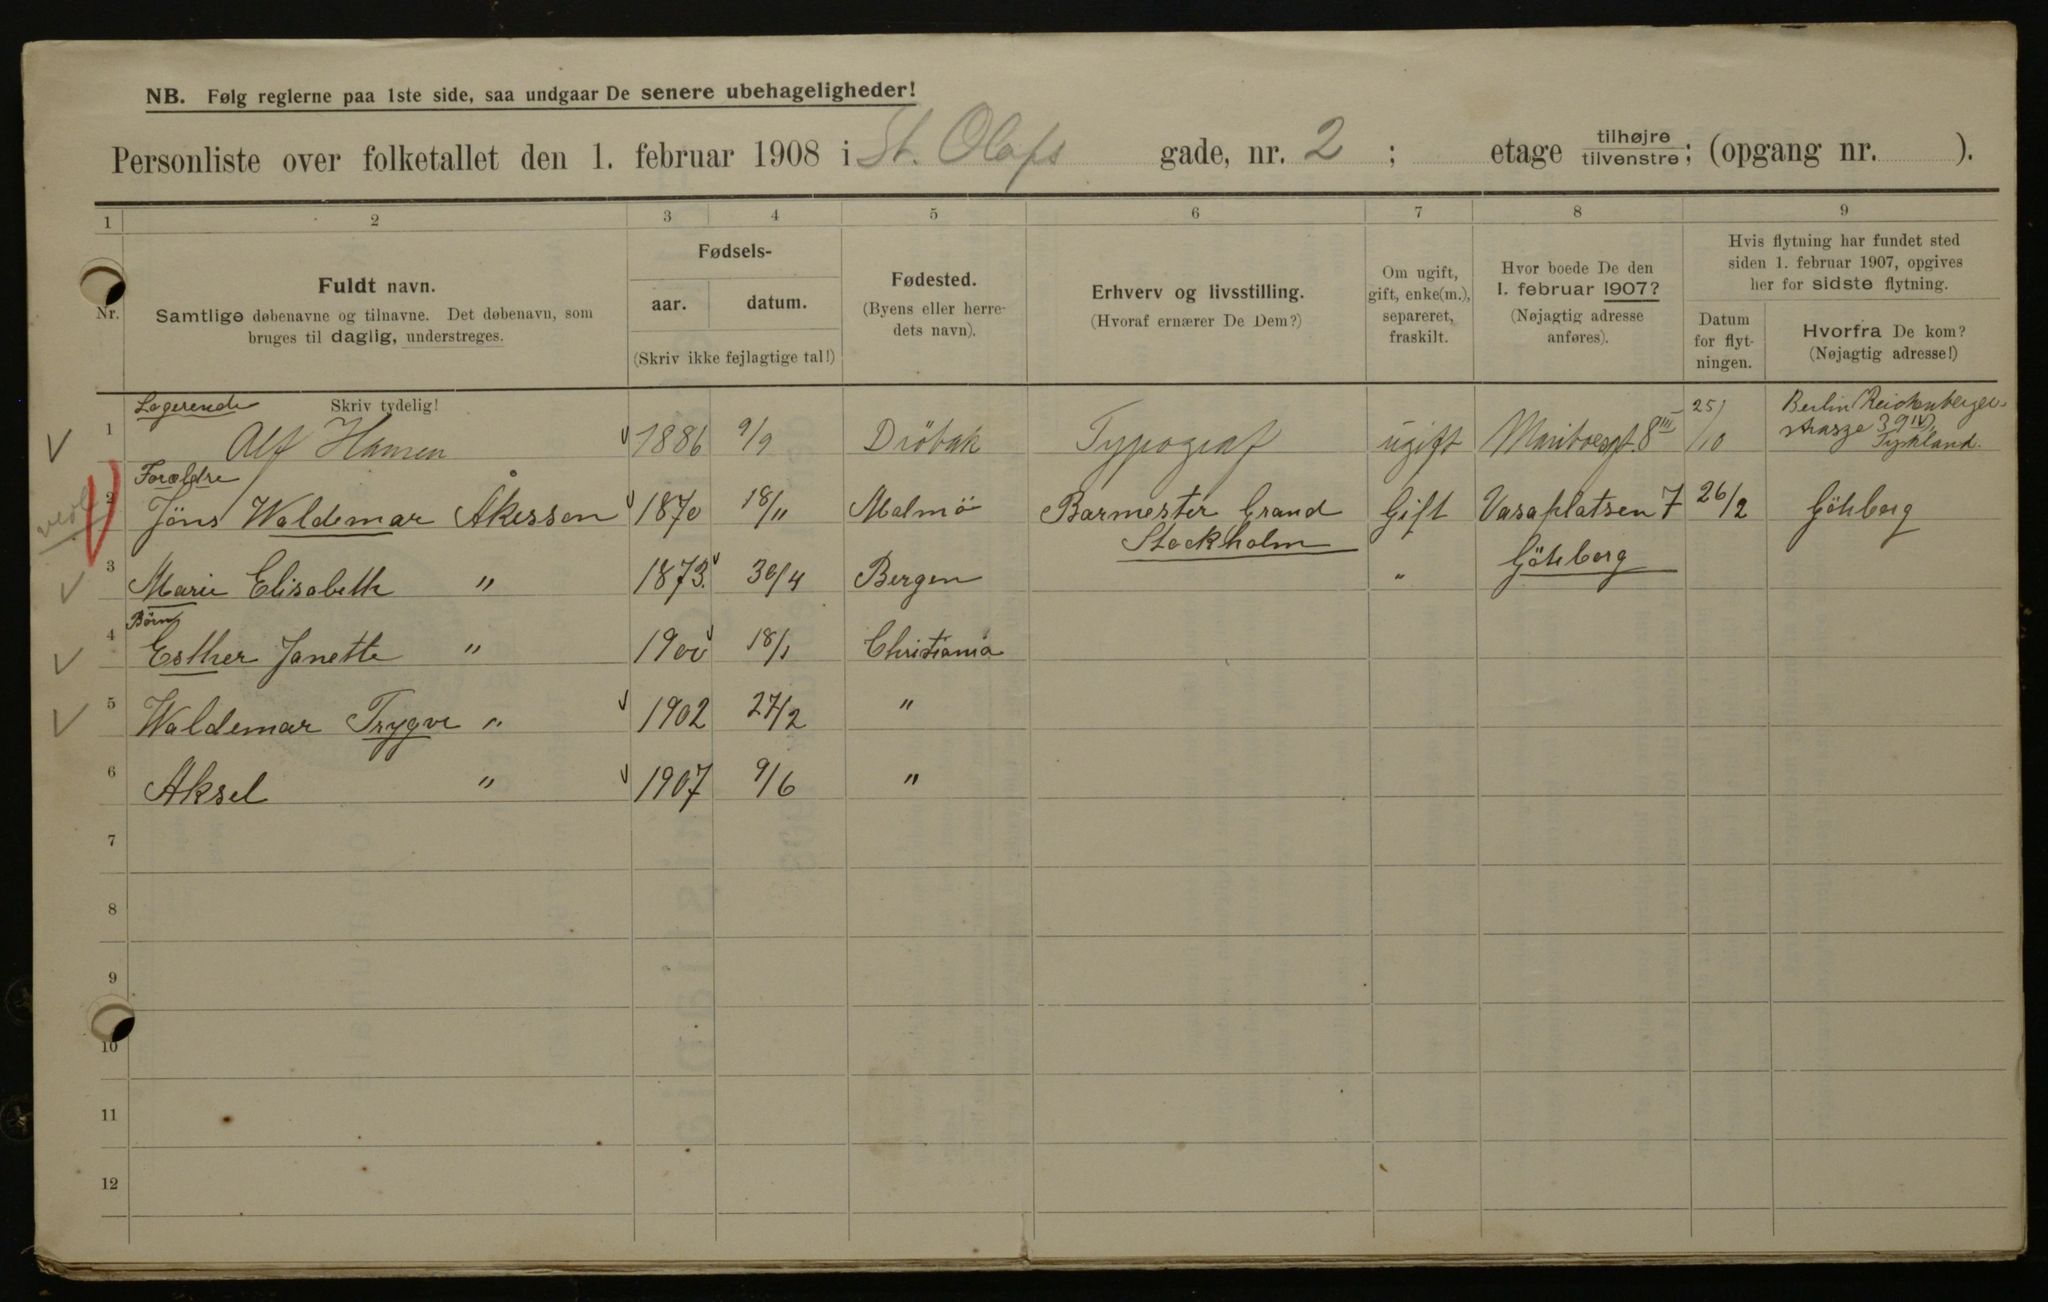 NB. Følg reglerne paa 1ste side, saa undgaar De senere ubehageligheder!
Personliste over folketallet den 1. februar 1908 i St. Olafs gade, nr. 2 ; etage tilhøjre/tilvenstre; (opgang nr. ).
1 2 3 4 5 6 7 8 9
Nr.
Fuldt navn.
Samtlige døbenavne og tilnavne. Det døbenavn, som
bruges til daglig, understreges.
Fødsels-
aar. datum.
(Skriv ikke fejlagtige tal!)
Fødested.
(Byens eller herre-
dets navn).
Erhverv og livsstilling.
(Hvoraf ernærer De Dem?)
Om ugift,
gift, enke(m.),
separeret,
fraskilt.
Hvor boede De den
1. februar 1907?
(Nøjagtig adresse
anføres).
Hvis flytning har fundet sted
siden 1. februar 1907, opgives
her for sidste flytning.
Datum
for flyt-
ningen.
Hvorfra De kom?
(Nøjagtig adresse!)
Logerende Skriv tydelig!
1 Alf Hansen 1886 9/9 Drøbak Typograf ugift Mariboesgt. 8 III 25/10 Berlin (Reichenberger-
strasze 39 IV)
Tyskland.
Forældre
2 Jöns Waldemar Åkesson 1870 18/11 Malmö Barmester Grand Gift Vasaplatsen 7 26/2 Göteborg
Stockholm Göteborg
3 Marie Elisabeth " 1873. 30/4 Bergen "
Börn
4 Esther Janette " 1900 18/1 Christiania
5 Waldemar Trygve " 1902 27/2 "
6 Aksel " 1907 9/6 "
7
8
9
10
11
12